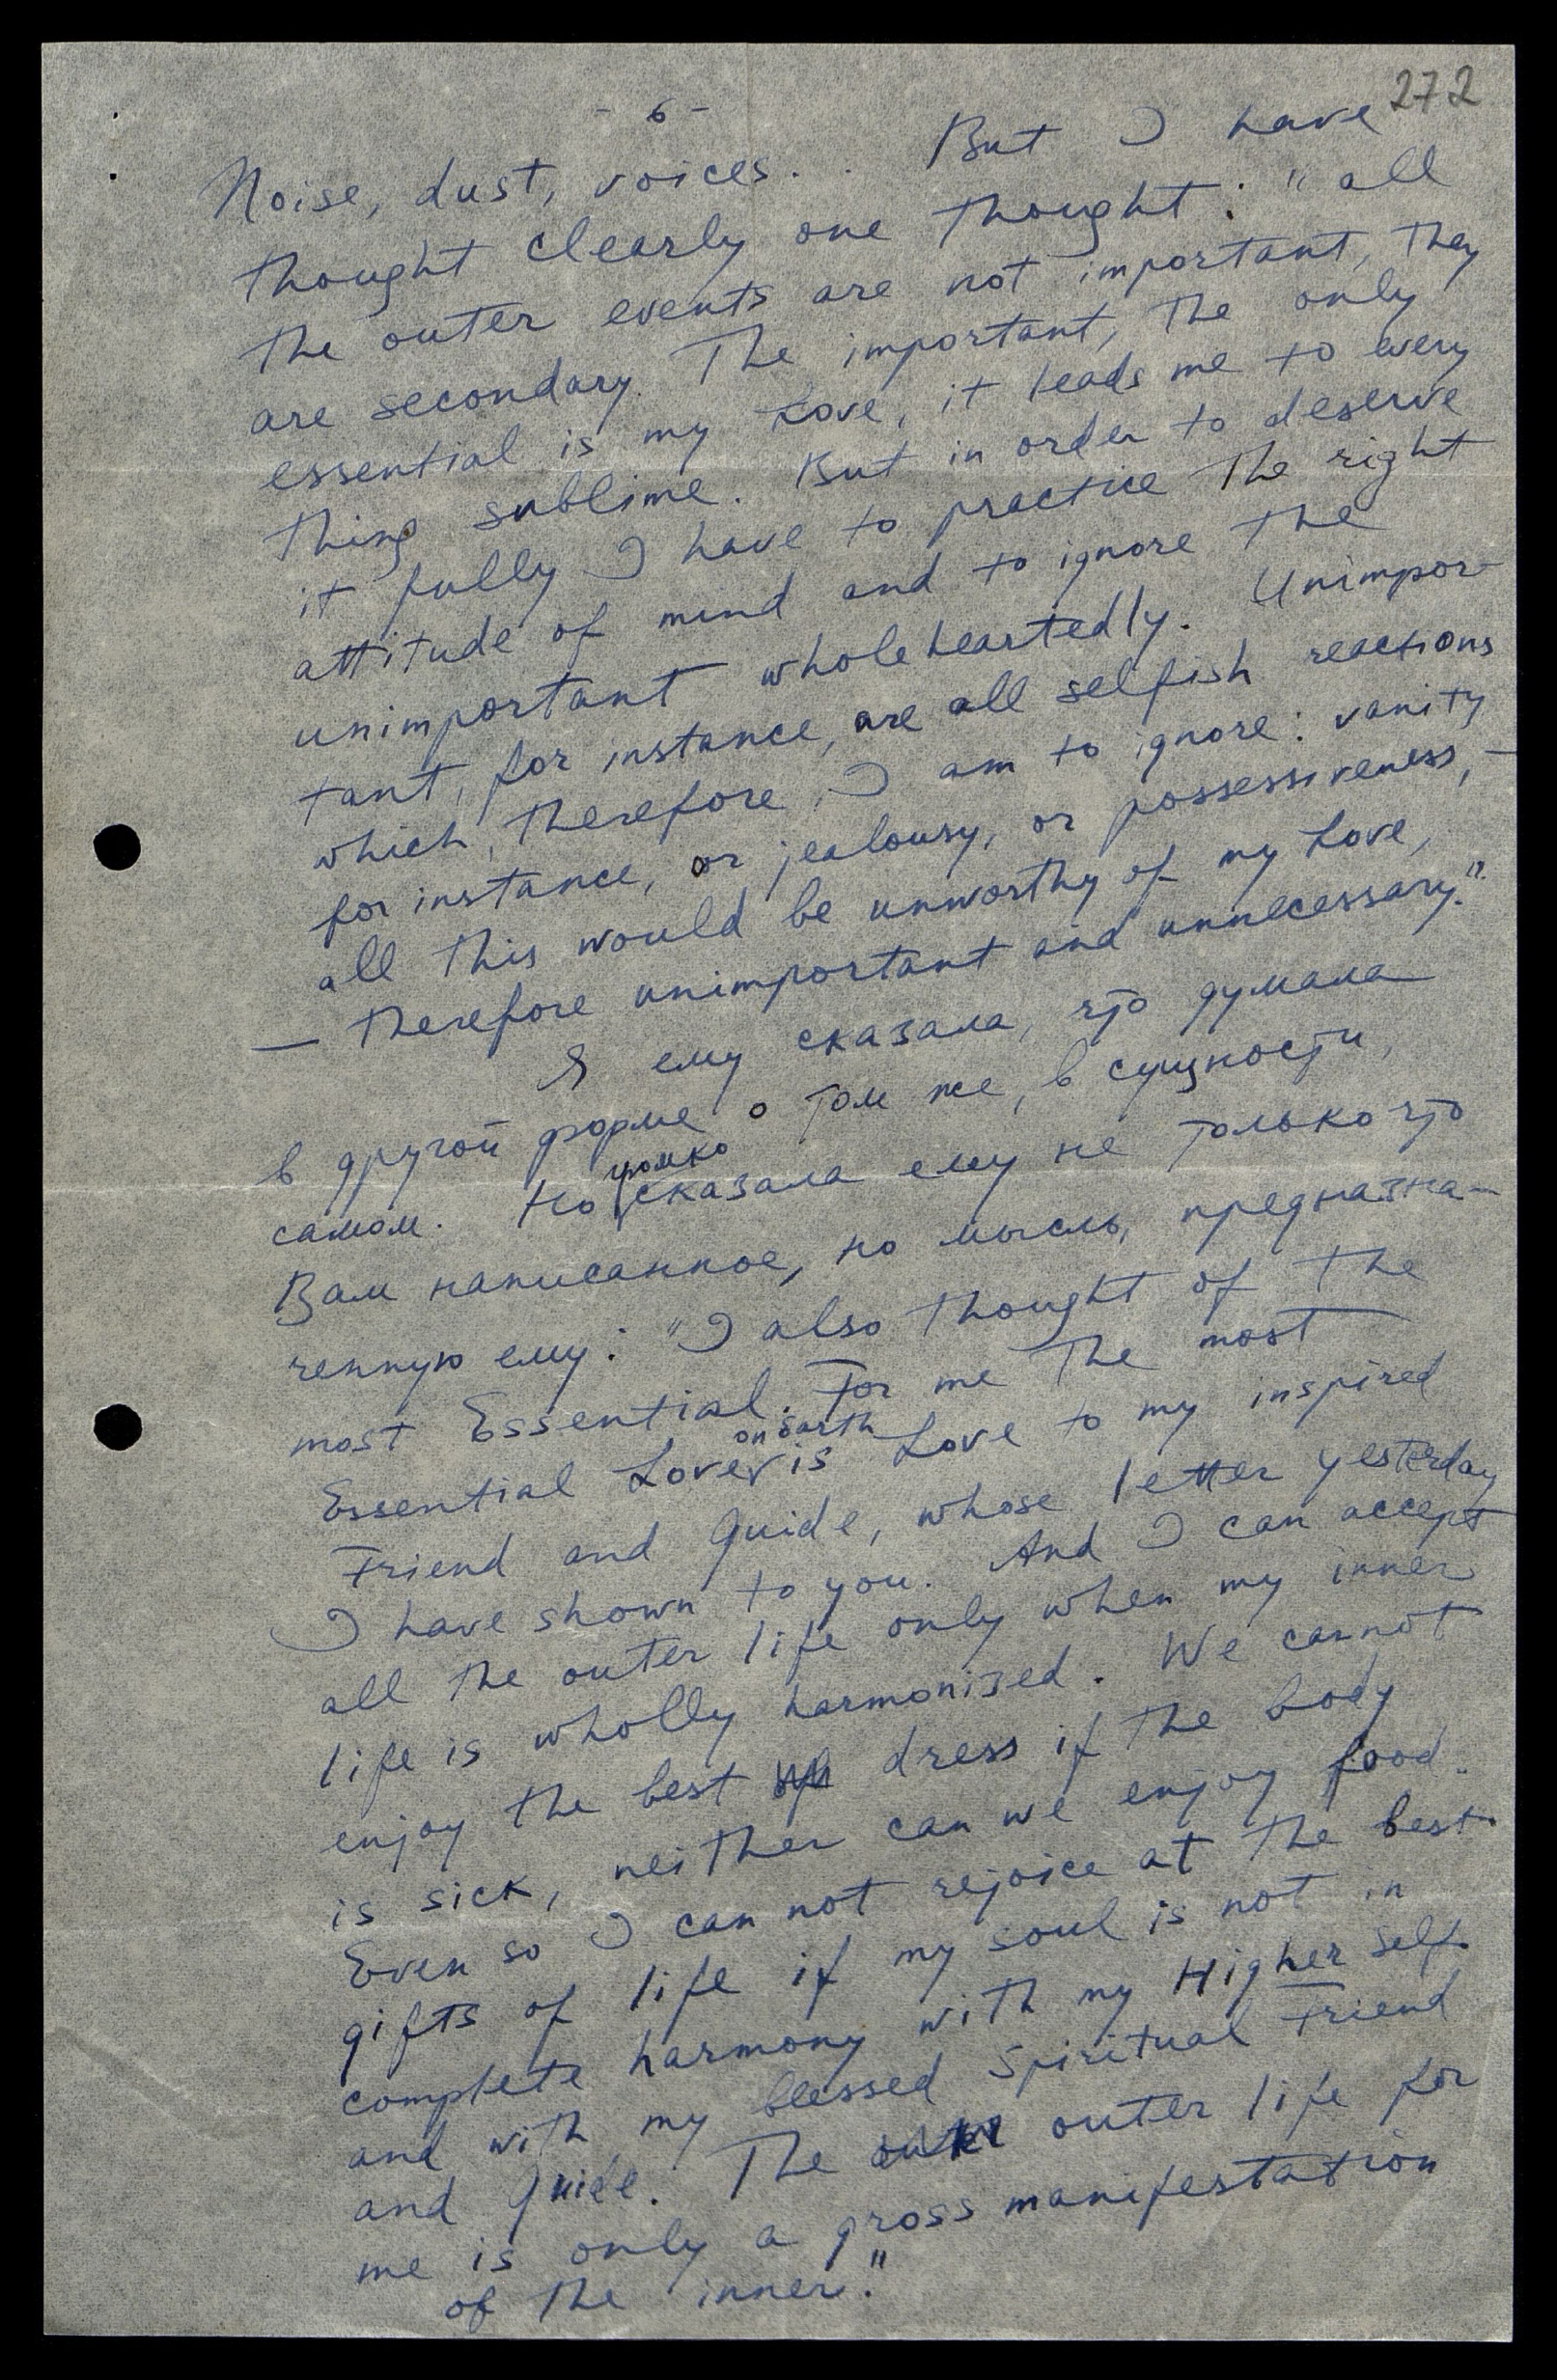 272
- 6 -
Noise, dust, voices. . But I have
thought clearly one thought: "all
the outer events are not important, they
are secondary. The important, the only
essential is my Love, it leads me to every
thing sublime. But in order to deserve
it fully I have to practice the right
attitude of mind and to ignore the
unimportant wholeheartedly. Unimpor-
tant, for instance, are all selfish reactions
which, therefore, I am to ignore: vanity
for instance, or jealousy, or possessiveness, —
all this would be unworthy of my Love,
— therefore unimportant and unnecessary."
Я ему сказала, что думала
в другой форме о том же, в сущности,
самом. Но только сказала ему не только что
Вам написанное, но мысль, предназна-
ченную ему: "I also thought of the
most Essential. For me the most
Essential Love on Earth is Love to my inspired
Friend and Guide, whose letter yesterday
I have shown to you. And I can accept
all the outer life only when my inner
life is wholly harmonised. We cannot
enjoy the best dress if the body
is sick, neither can we enjoy food.
Even so I can not rejoice at the best
gifts of life if my soul is not in
complete harmony with my Higher Self
and with my blessed Spiritual Friend
and Guide. The outer life for
me is only a gross manifestation
of the inner."